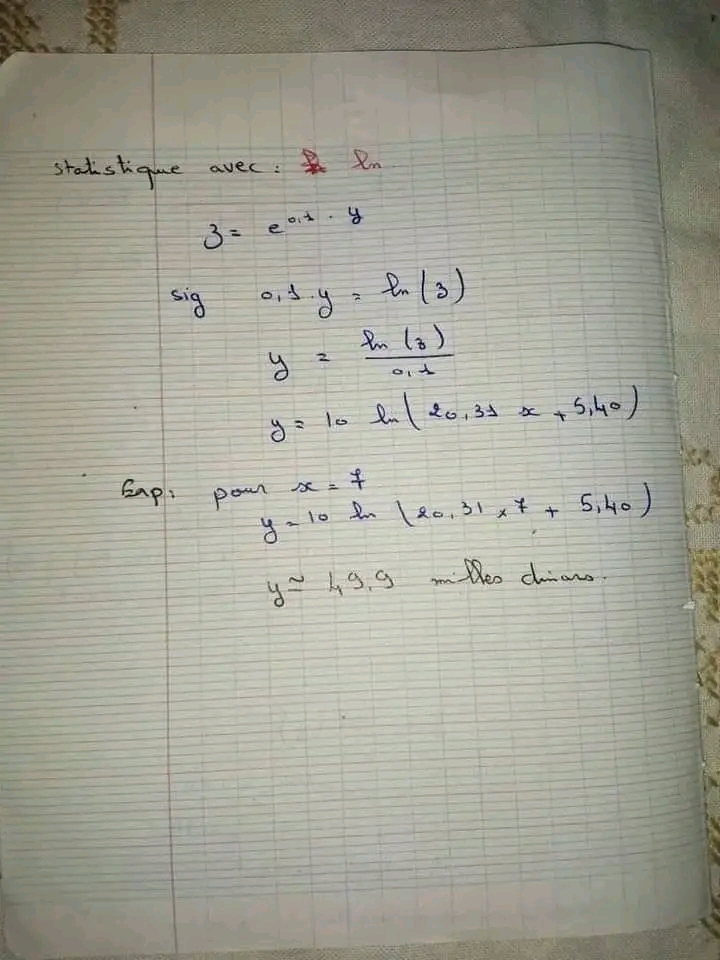 statistique avec : ln
z = e^0,1 . y
sig 0,1 . y = ln(z)
y = ln(z) / 0,1
y = 10 ln(20,31 x + 5,40)
Exp : pour x = 7
y = 10 ln(20,31 × 7 + 5,40)
y ≃ 49,9 milles dinars.